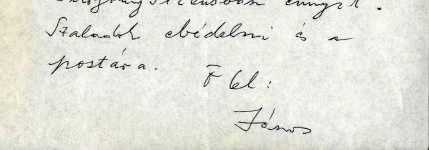 ennyit.
Szaladok ebédelni és a
postára.
János